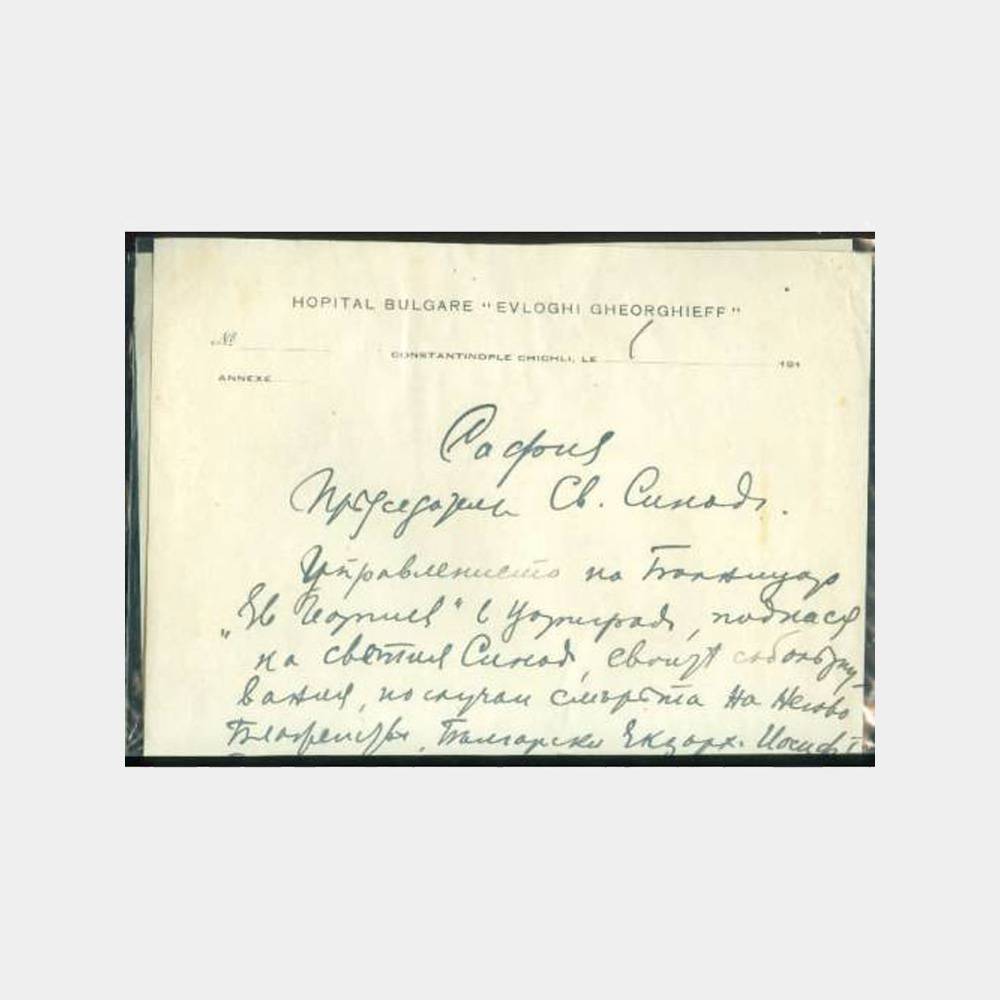 HOPITAL BULGARE "EVLOGHI GHEORGHIEFF"
№
CONSTANTINOPLE CHICHLI, LE 191
ANNEXE
София
Председатель Св. Синодъ.
Управлението на Болницата
„Ев Георгиев" в Цариградъ, поднася
на светия Синод, своитѣ съболѣзну-
вания, по случаи смъртьта на Негово
Блаженство, Български Екзархъ Иосифъ I